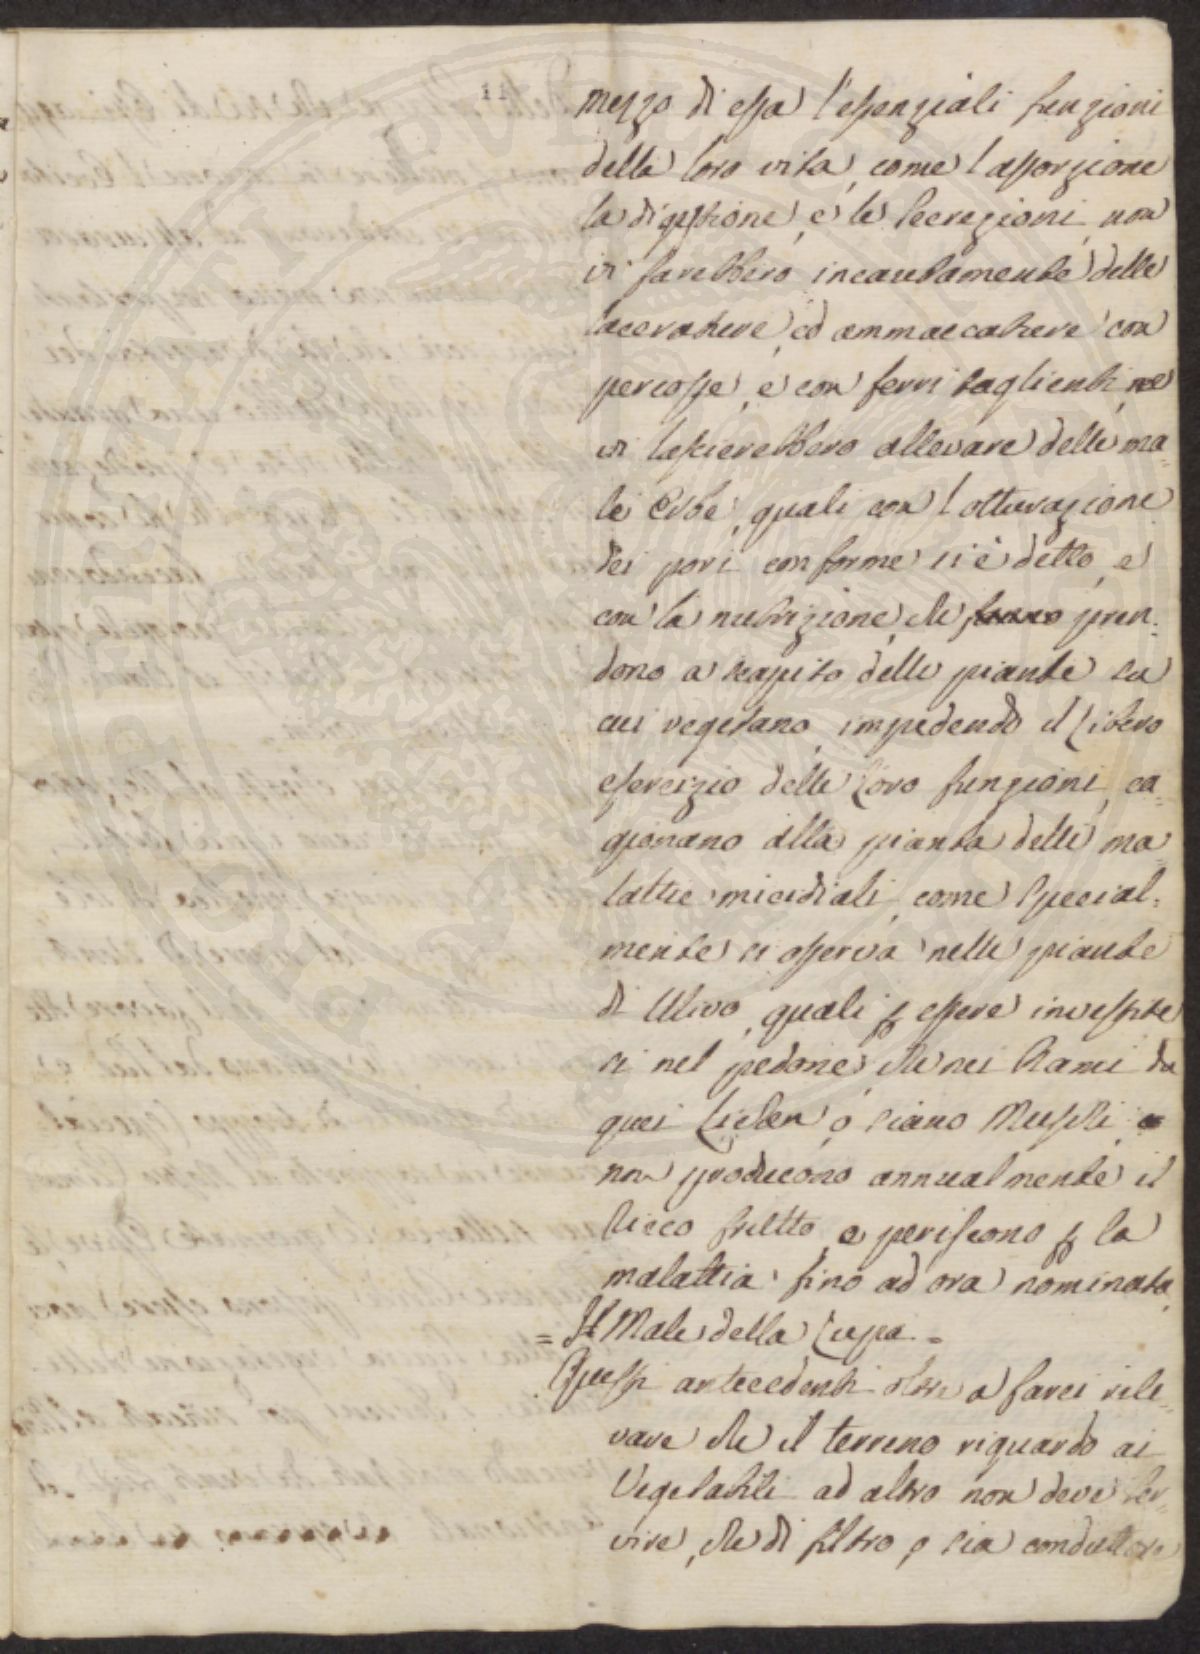 11
mezzo di essa l'essenziali funzioni
della loro vita, come l'assorzione
la digestione, e le Secrezioni, non
vi farebbero incautamente delle
lacerature, ed ammaccature con
percosse, e con ferri taglienti, ne
vi lascierebbero allevare delle ma=
le Erbe, quali con l'otturazione
dei pori conforme si è detto, e
con la nutrizione, che pren=
dono a scapito delle piante su
cui vegetano, impedendo il libero
esercizio delle loro funzioni, ca=
gionano alla pianta delle ma=
lattie micidiali, come special=
mente si osserva nelle piante
di Ulivo, quali p essere investite
si nel pedone, che nei Rami da
quei Lichen, o siano Muschi,
non producono annualmente il
Ricco frutto, o periscono p la
malattia fino ad ora nominata,
= Il Male della Lupa =
Questi antecedenti oltre a farci rile=
vare che il terreno riguardo ai
Vegetabili ad altro non deve ser=
vire, che di filtro, o sia conduttore